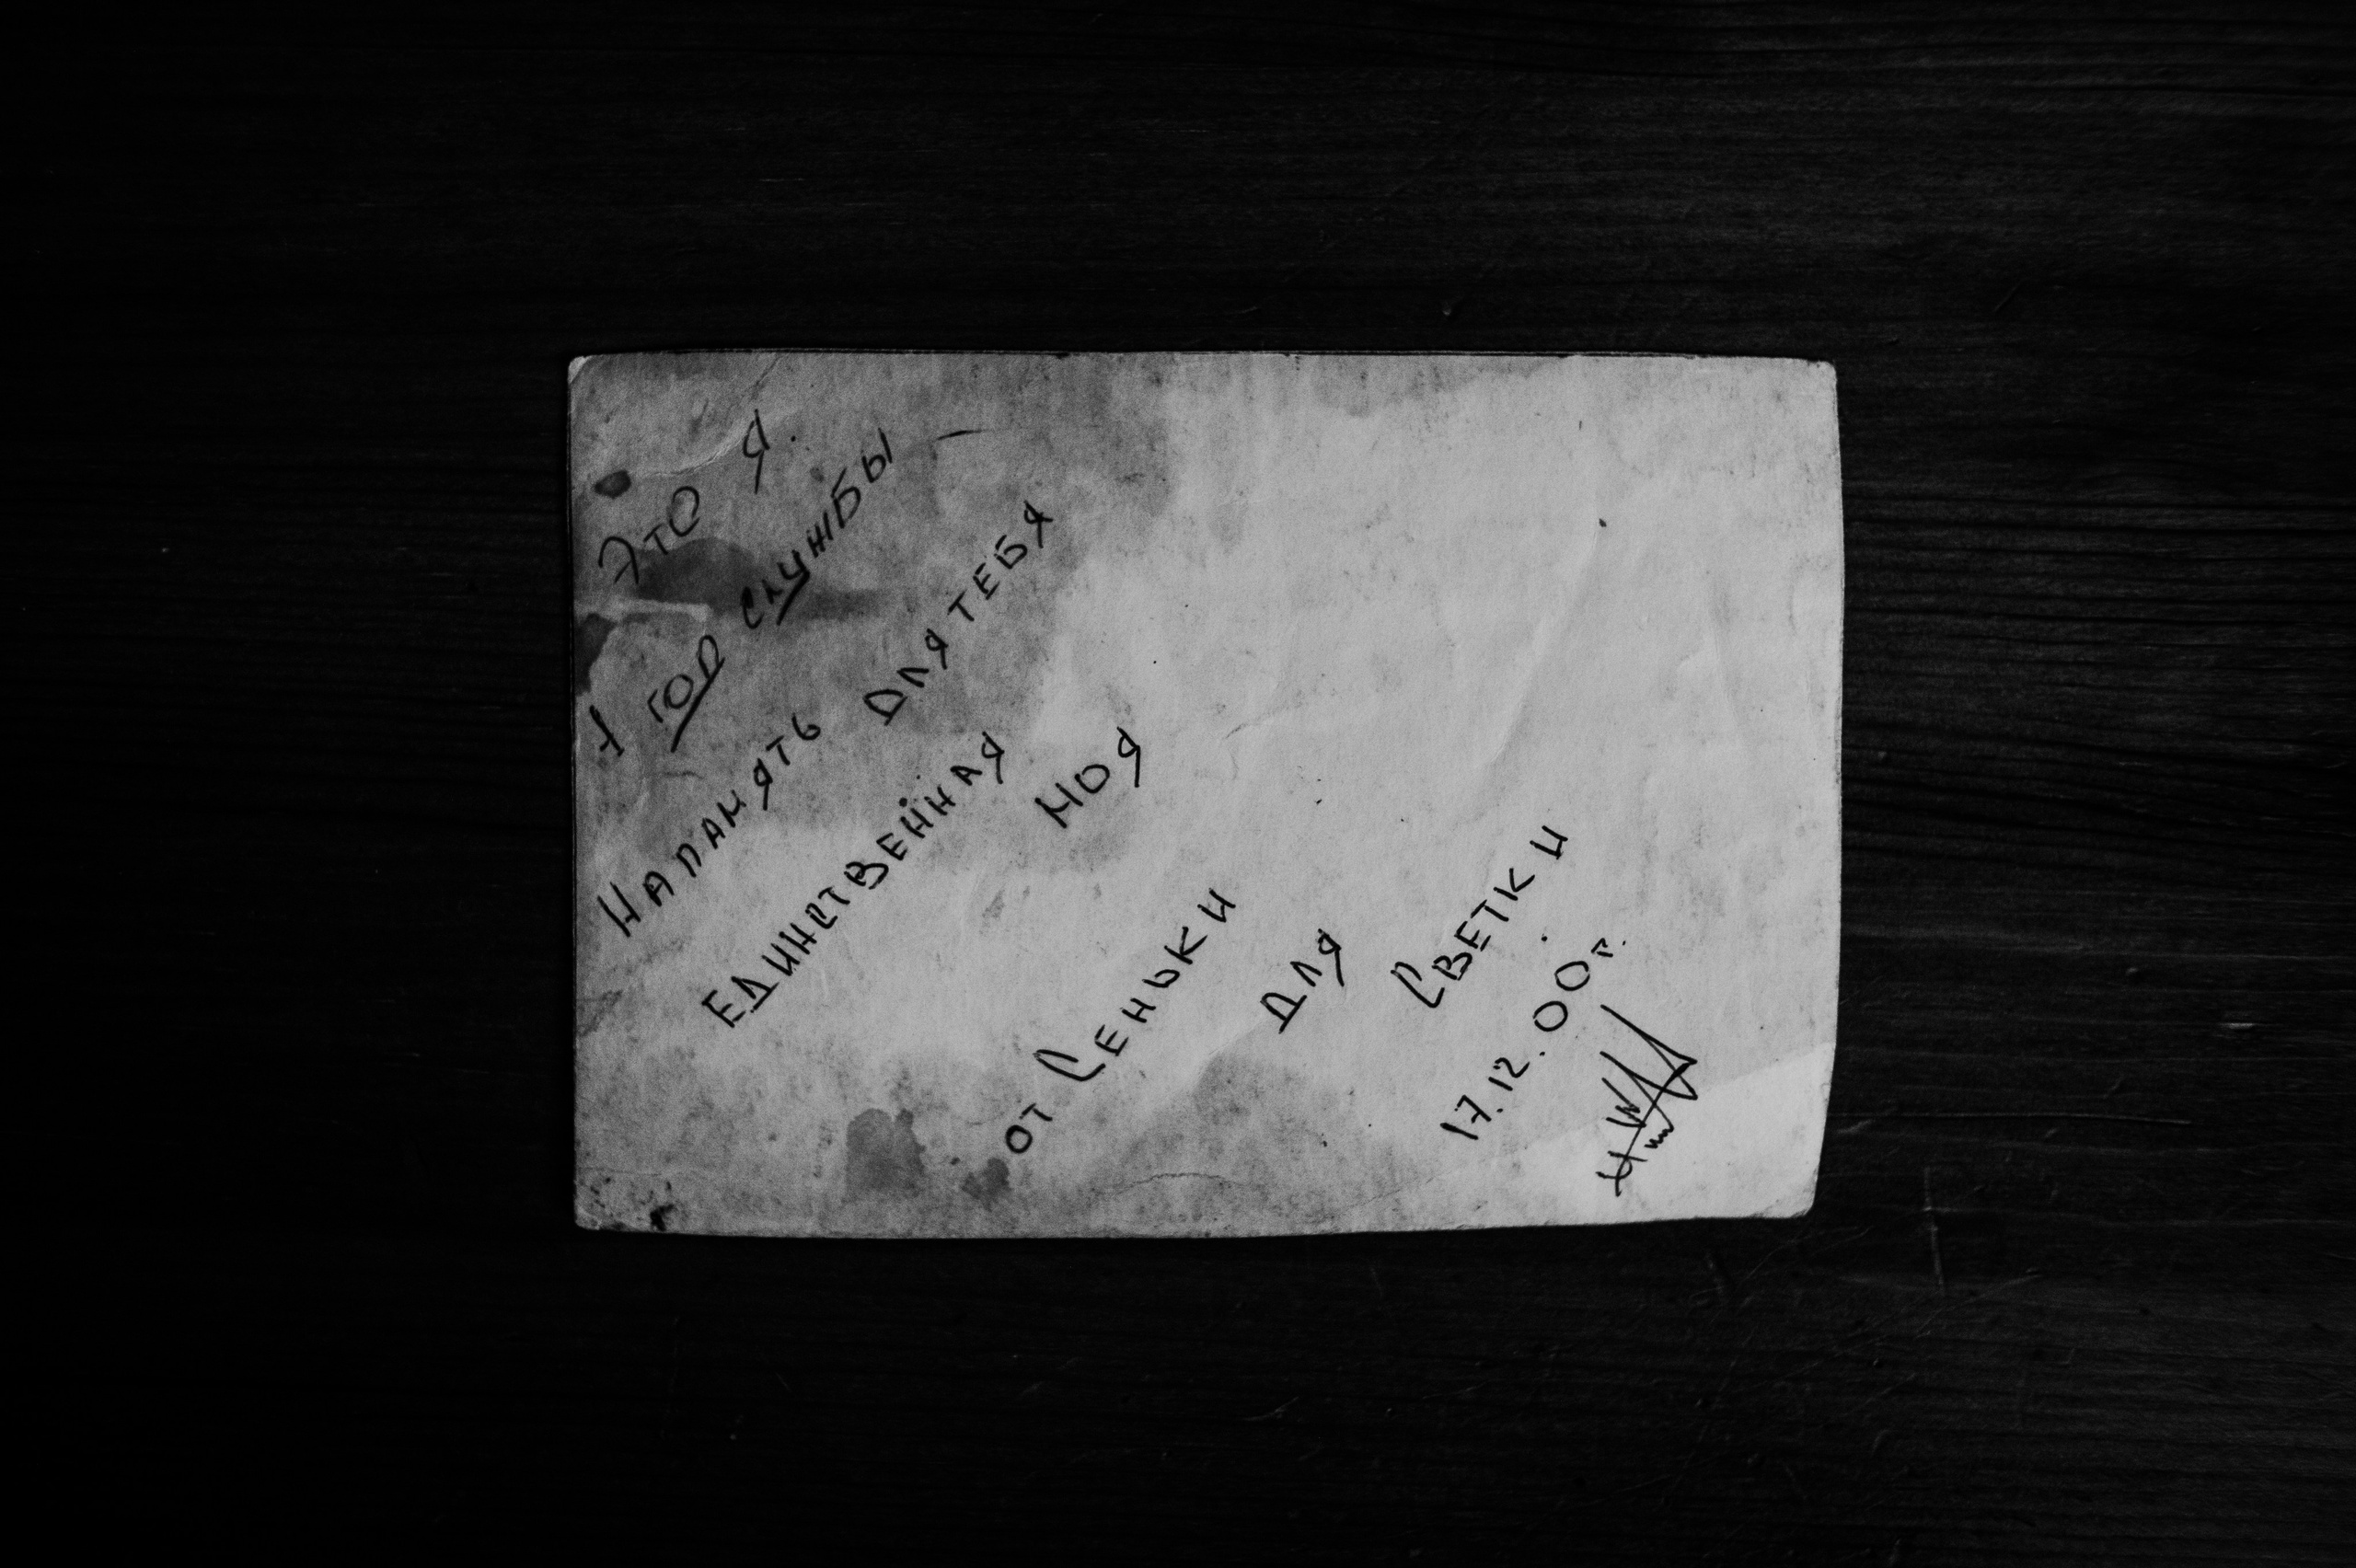 Это я.
1 год службы
На память для тебя
единственная моя
от Сеньки для Светки.
17.12.00г.